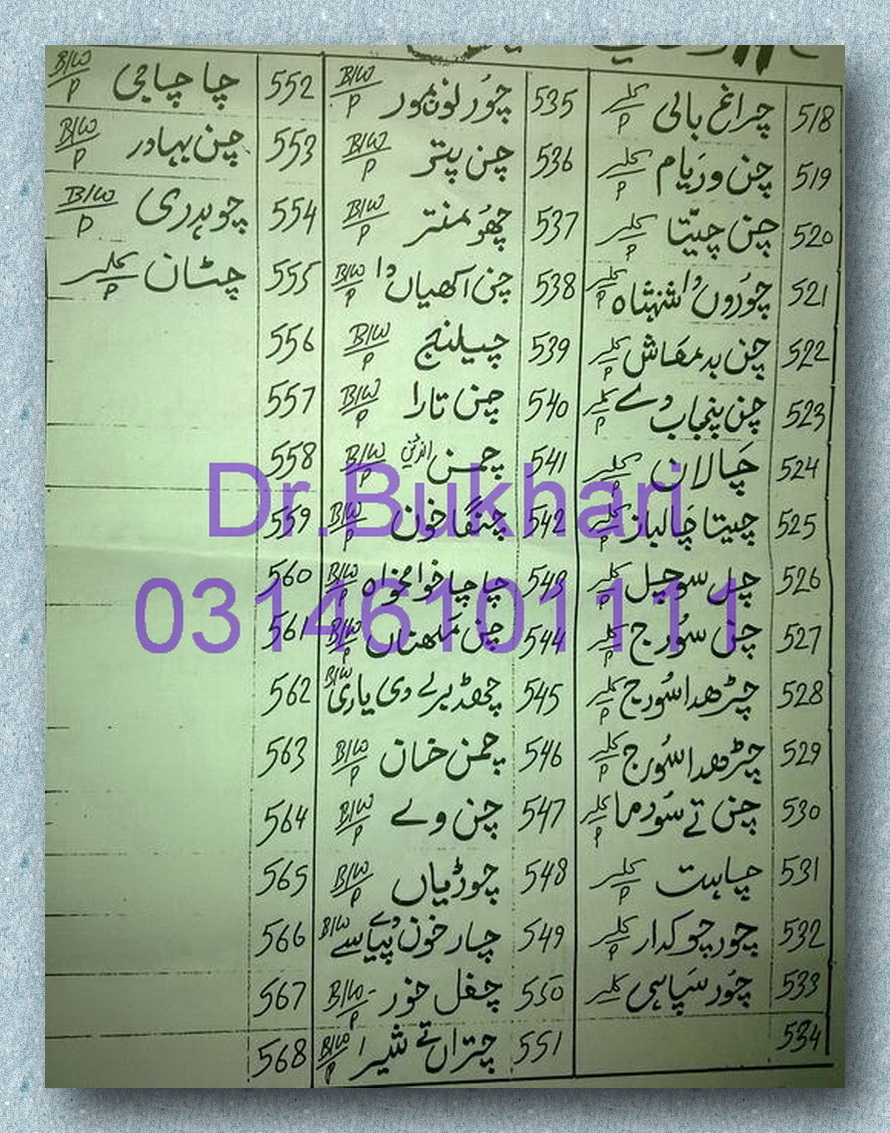 518 چراغ بالی کلر/P
519 چن وریام کلر/P
520 چن چیتا کلر/P
521 چوروں دا شہنشاہ کلر/P
522 چن بدمعاش کلر/P
523 چن پنجاب دے کلر/P
524 چالان کلر/P
525 چیتا چالباز کلر/P
526 چل سو چل کلر/P
527 چن سورج کلر/P
528 چڑھدا سورج کلر/P
529 چڑھدا سورج کلر/P
530 چن تے سورما کلر/P
531 چاہت کلر/P
532 چور چوکدار کلر/P
533 چور سپاہی کلر
534
535 چور لون مور B/W/P
536 چن پتر B/W/P
537 چھو منتر B/W/P
538 چن اکھیاں دا B/W/P
539 چیلنج B/W/P
540 چن تارا B/W/P
541 چمن انڈین B/W/P
542 چنگا خون B/W/P
543 چاچا خوامخواہ B/W/P
544 چن مکھناں B/W/P
545 چھڈ برے دی یاری B/W
546 چمن خان B/W/P
547 چن وے B/W/P
548 چوڑیاں B/W/P
549 چار خون دے پیاسے B/W
550 چغل خور B/W/P
551 چتراں تے شیرا B/W/P
552 چاچا جی B/W/P
553 چن بہادر B/W/P
554 چوہدری B/W/P
555 چٹان کلر/P
556
557
558
559
560
561
562
563
564
565
566
567
568
Dr.Bukhari
03146101111